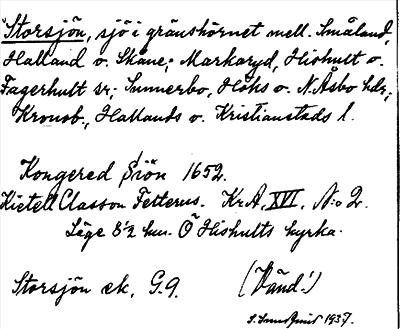 Storsjön, sjö i gränshörnet mell. Småland,
Halland o. Skåne; Markaryd, Hishult o.
Fagerhult sr; Sunnerbo, Höks o. N. Åsbo hdr;
Kronob., Hallands o. Kristianstads l.
Kongered Siön 1652.
Kietell Classon Felterus. Kr.A. XVI. N:o 2.
Läge 8½ km. Ö Hishults kyrka.
Storsjön ek. G.9. (Vänd!)
1937.